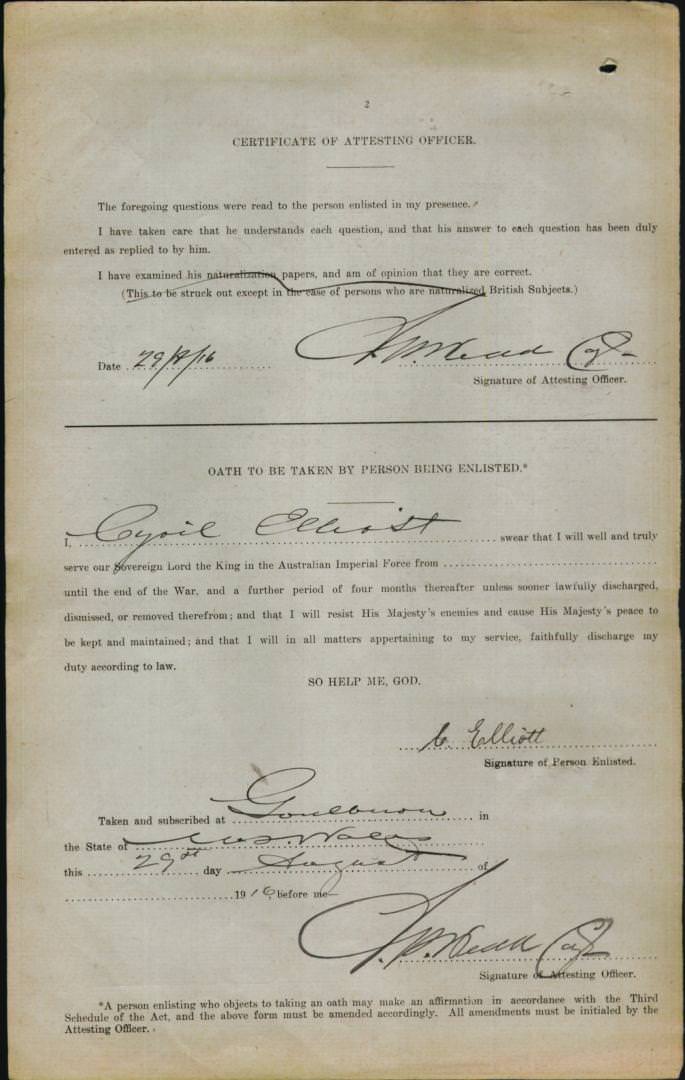 2
CERTIFICATE OF ATTESTING OFFICER.
The foregoing questions were read to the person enlisted in my presence.
I have taken care that he understands each question, and that his answer to each question has been duly
entered as replied to by him.
I have examined his naturalization papers, and am of opinion that they are correct.
(This to be struck out except in the case of persons who are naturalized British Subjects.)
Date 29/8/16
Signature of Attesting Officer.
OATH TO BE TAKEN BY PERSON BEING ENLISTED.*
I, Cyril Elliott swear that I will well and truly
serve our Sovereign Lord the King in the Australian Imperial Force from
until the end of the War, and a further period of four months thereafter unless sooner lawfully discharged,
dismissed, or removed therefrom; and that I will resist His Majesty's enemies and cause His Majesty's peace to
be kept and maintained; and that I will in all matters appertaining to my service, faithfully discharge my
duty according to law.
SO HELP ME, GOD.
C. Elliott
Signature of Person Enlisted.
Taken and subscribed at Goulburn in
the State of N.S. Wales
this 29th day August of
1916, before me—
Signature of Attesting Officer.
*A person enlisting who objects to taking an oath may make an affirmation in accordance with the Third
Schedule of the Act, and the above form must be amended accordingly. All amendments must be initialed by the
Attesting Officer.